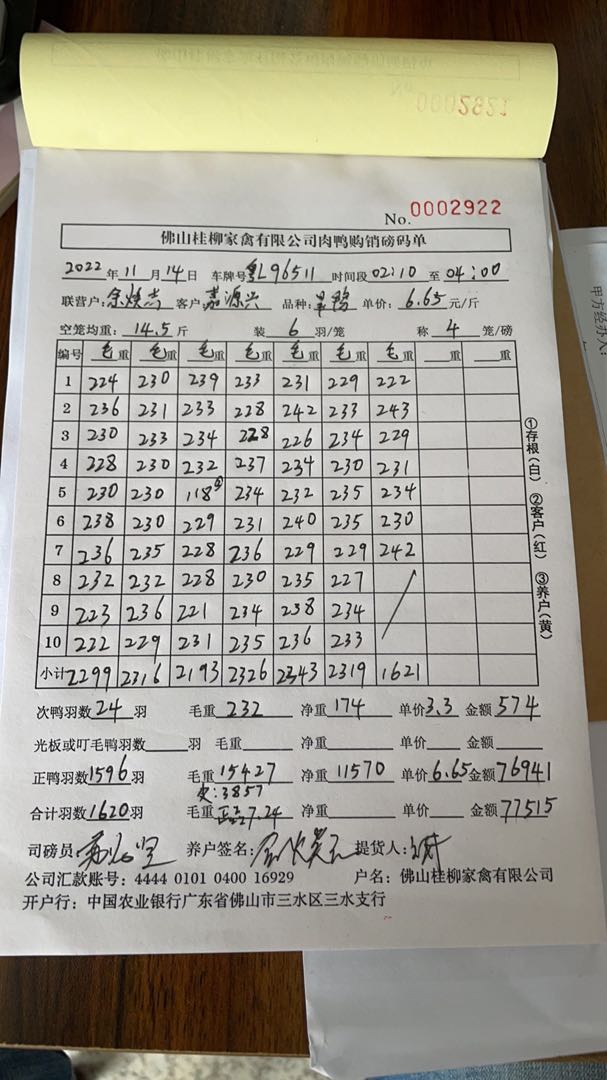 0002921
No. 0002922
佛山桂柳家禽有限公司肉鸭购销磅码单
2022年11月14日 车牌号粤L96511 时间段02:10至04:00
联营户:余焕志 客户嘉源兴 品种: 单价:6.65元/斤
空笼均重:14.5斤 装6羽/笼 称4笼/磅
编号 毛重 毛重 毛重 毛重 毛重 毛重 毛重 重 重
1 224 230 239 233 231 229 222
2 236 231 233 228 242 233 243
3 230 233 234 228 226 234 229
4 228 230 232 237 234 230 231
5 230 230 118 234 232 235 234
6 238 230 229 231 240 235 230
7 236 235 228 236 229 229 242
8 232 232 228 230 235 227
9 223 236 221 234 238 234
10 222 229 231 235 236 233
小计 2299 2316 2193 2326 2343 2319 1621
①存根(白) ②客户(红) ③养户(黄)
次鸭羽数24羽 毛重232 净重174 单价3.3 金额574
光板或叮毛鸭羽数 羽 毛重 净重 单价 金额
正鸭羽数1596羽 毛重15427 净重11570 单价6.65 金额76941
:3857
合计羽数1620羽 毛重 7.24 净重 单价 金额77515
司磅员 养户签名: 提货人:
公司汇款账号:4444 0101 0400 16929 户名:佛山桂柳家禽有限公司
开户行:中国农业银行广东省佛山市三水区三水支行
甲方经办人: